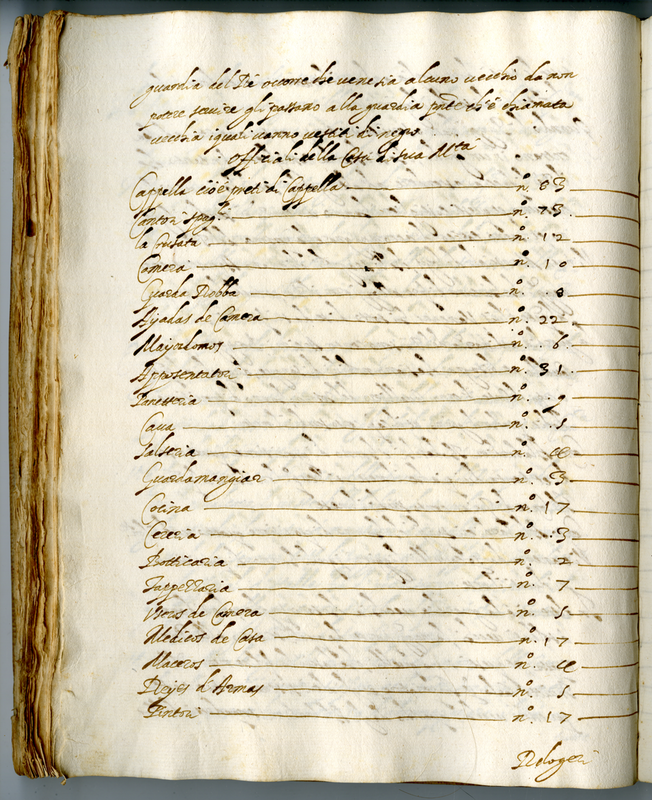 guardia del Rè occorre che venesia alcuno vecchio da non
potere servire gli passano alla guardia pnte ch'è chiamata
vecchia i quali vanno vestiti di negro
Offitiali della Casa di sua Mta
Cappella cioè preti di Cappella n.º 03
Cantori n.º 73.
la Crusata n.º 12
Camera n.º 10
Guarda Robba n.º 8
Ajudas de Camera n.º 22
Mayordomos n.º 6.
Apposentatori n.º 31.
Panetteria n.º 9
Cava n.º 5
Salseria n.º
Guardamangiar n.º 3
Cocina n.º 17
Cereria n.º 3
Botticaria n.º 2
Tappezzaria n.º 7
Uxeros de Camera n.º 5
Medicos de Casa n.º 17
Maceros n.º
Reyes d'Armas n.º 5
Pintori n.º 17
Relogeri